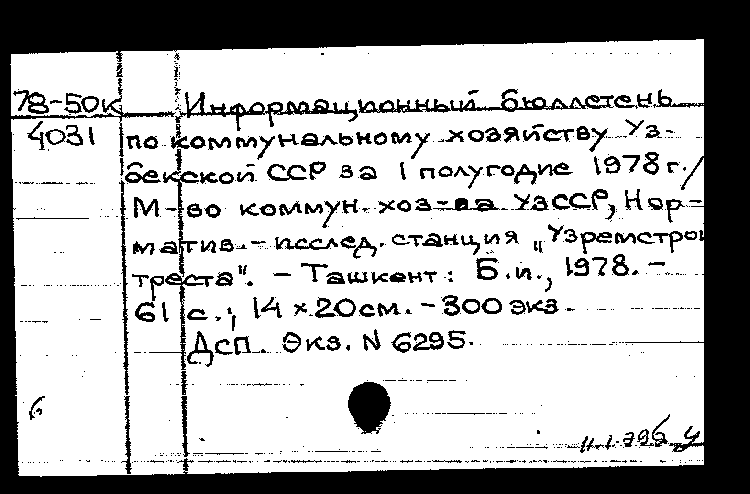 78-50к Информационный бюллетень
4031 по коммунальному хозяйству Уз-
бекской ССР за I полугодие 1978 г./
М-во коммун. хоз-ва УзССР, Нор-
матив.-исслед. станция „Узремстрой
треста". - Ташкент: Б.и., 1978. -
61 с.; 14 × 20 см. - 300 экз.
Дсп. Экз. N 6295.
б